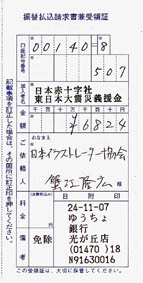 振替払込請求書兼受領証
口座記号番号
00140-8
507
加入者名
日本赤十字社
東日本大震災義援金
金額
千百十万千百十円
¥6824
ご依頼人
おなまえ
日本イラストレーター協会
蟹江隆広 様
料金
(消費税込み)
日附印
備考
免除
24-11-07
ゆうちょ
銀行
光が丘店
(01470)18
N91630016
この受領証は、大切に保管してください。
記載事項を訂正した場合は、その箇所に訂正印を押してください。